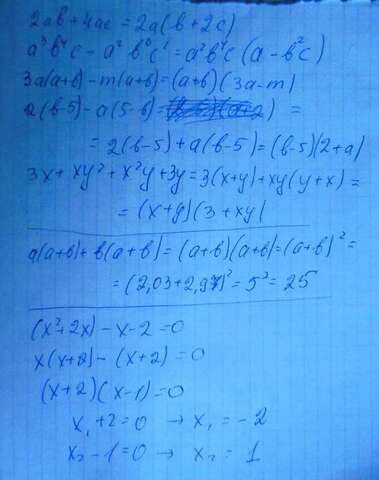 2aв + 4ac = 2a(в + 2c)
a³в⁴c - a²в⁶c² = a²в⁴c(a - в²c)
3a(a+в) - m(a+в) = (a+в)(3a-m)
2(в-5) - a(5-в) = =
= 2(в-5) + a(в-5) = (в-5)(2+a)
3x + xy² + x²y + 3y = 3(x+y) + xy(y+x) =
= (x+y)(3+xy)
a(a+в) + в(a+в) = (a+в)(a+в) = (a+в)² =
= (2,03 + 2,97)² = 5² = 25
(x²+2x) - x - 2 = 0
x(x+2) - (x+2) = 0
(x+2)(x-1) = 0
x₁ + 2 = 0 → x₁ = -2
x₂ - 1 = 0 → x₂ = 1